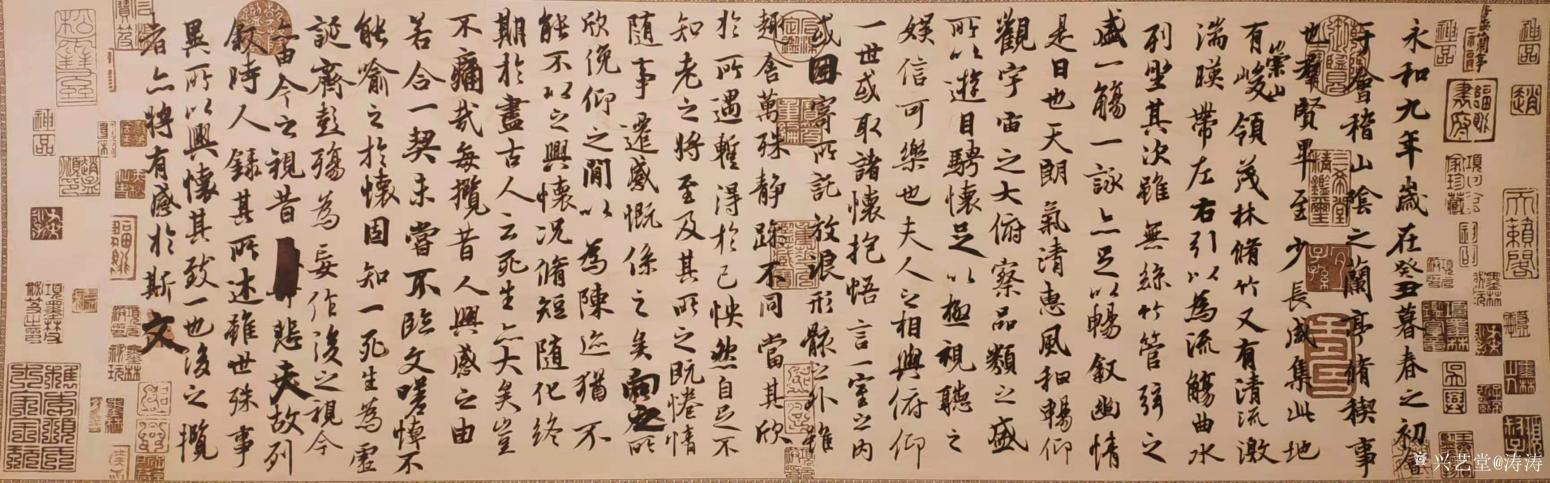 永和九年歲在癸丑暮春之初會
于會稽山陰之蘭亭脩稧事
也羣賢畢至少長咸集此地
有崇山峻領茂林脩竹又有清流激
湍暎帶左右引以為流觴曲水
列坐其次雖無絲竹管弦之
盛一觴一詠亦足以暢敘幽情
是日也天朗氣清惠風和暢仰
觀宇宙之大俯察品類之盛
所以遊目騁懷足以極視聽之
娛信可樂也夫人之相與俯仰
一世或取諸懷抱悟言一室之內
或因寄所託放浪形骸之外雖
趣舍萬殊靜躁不同當其欣
於所遇暫得於己怏然自足不
知老之將至及其所之既惓情
隨事遷感慨係之矣向之所
欣俛仰之閒以為陳迹猶不
能不以之興懷況脩短隨化終
期於盡古人云死生亦大矣豈
不痛哉每攬昔人興感之由
若合一契未嘗不臨文嗟悼不
能喻之於懷固知一死生為虛
誕齊彭殤為妄作後之視今
亦由今之視昔悲夫故列
敘時人錄其所述雖世殊事
異所以興懷其致一也後之攬
者亦將有感於斯文
神品
趙
天籟閣
神品
松雪齋
神品
兴艺堂@涛涛